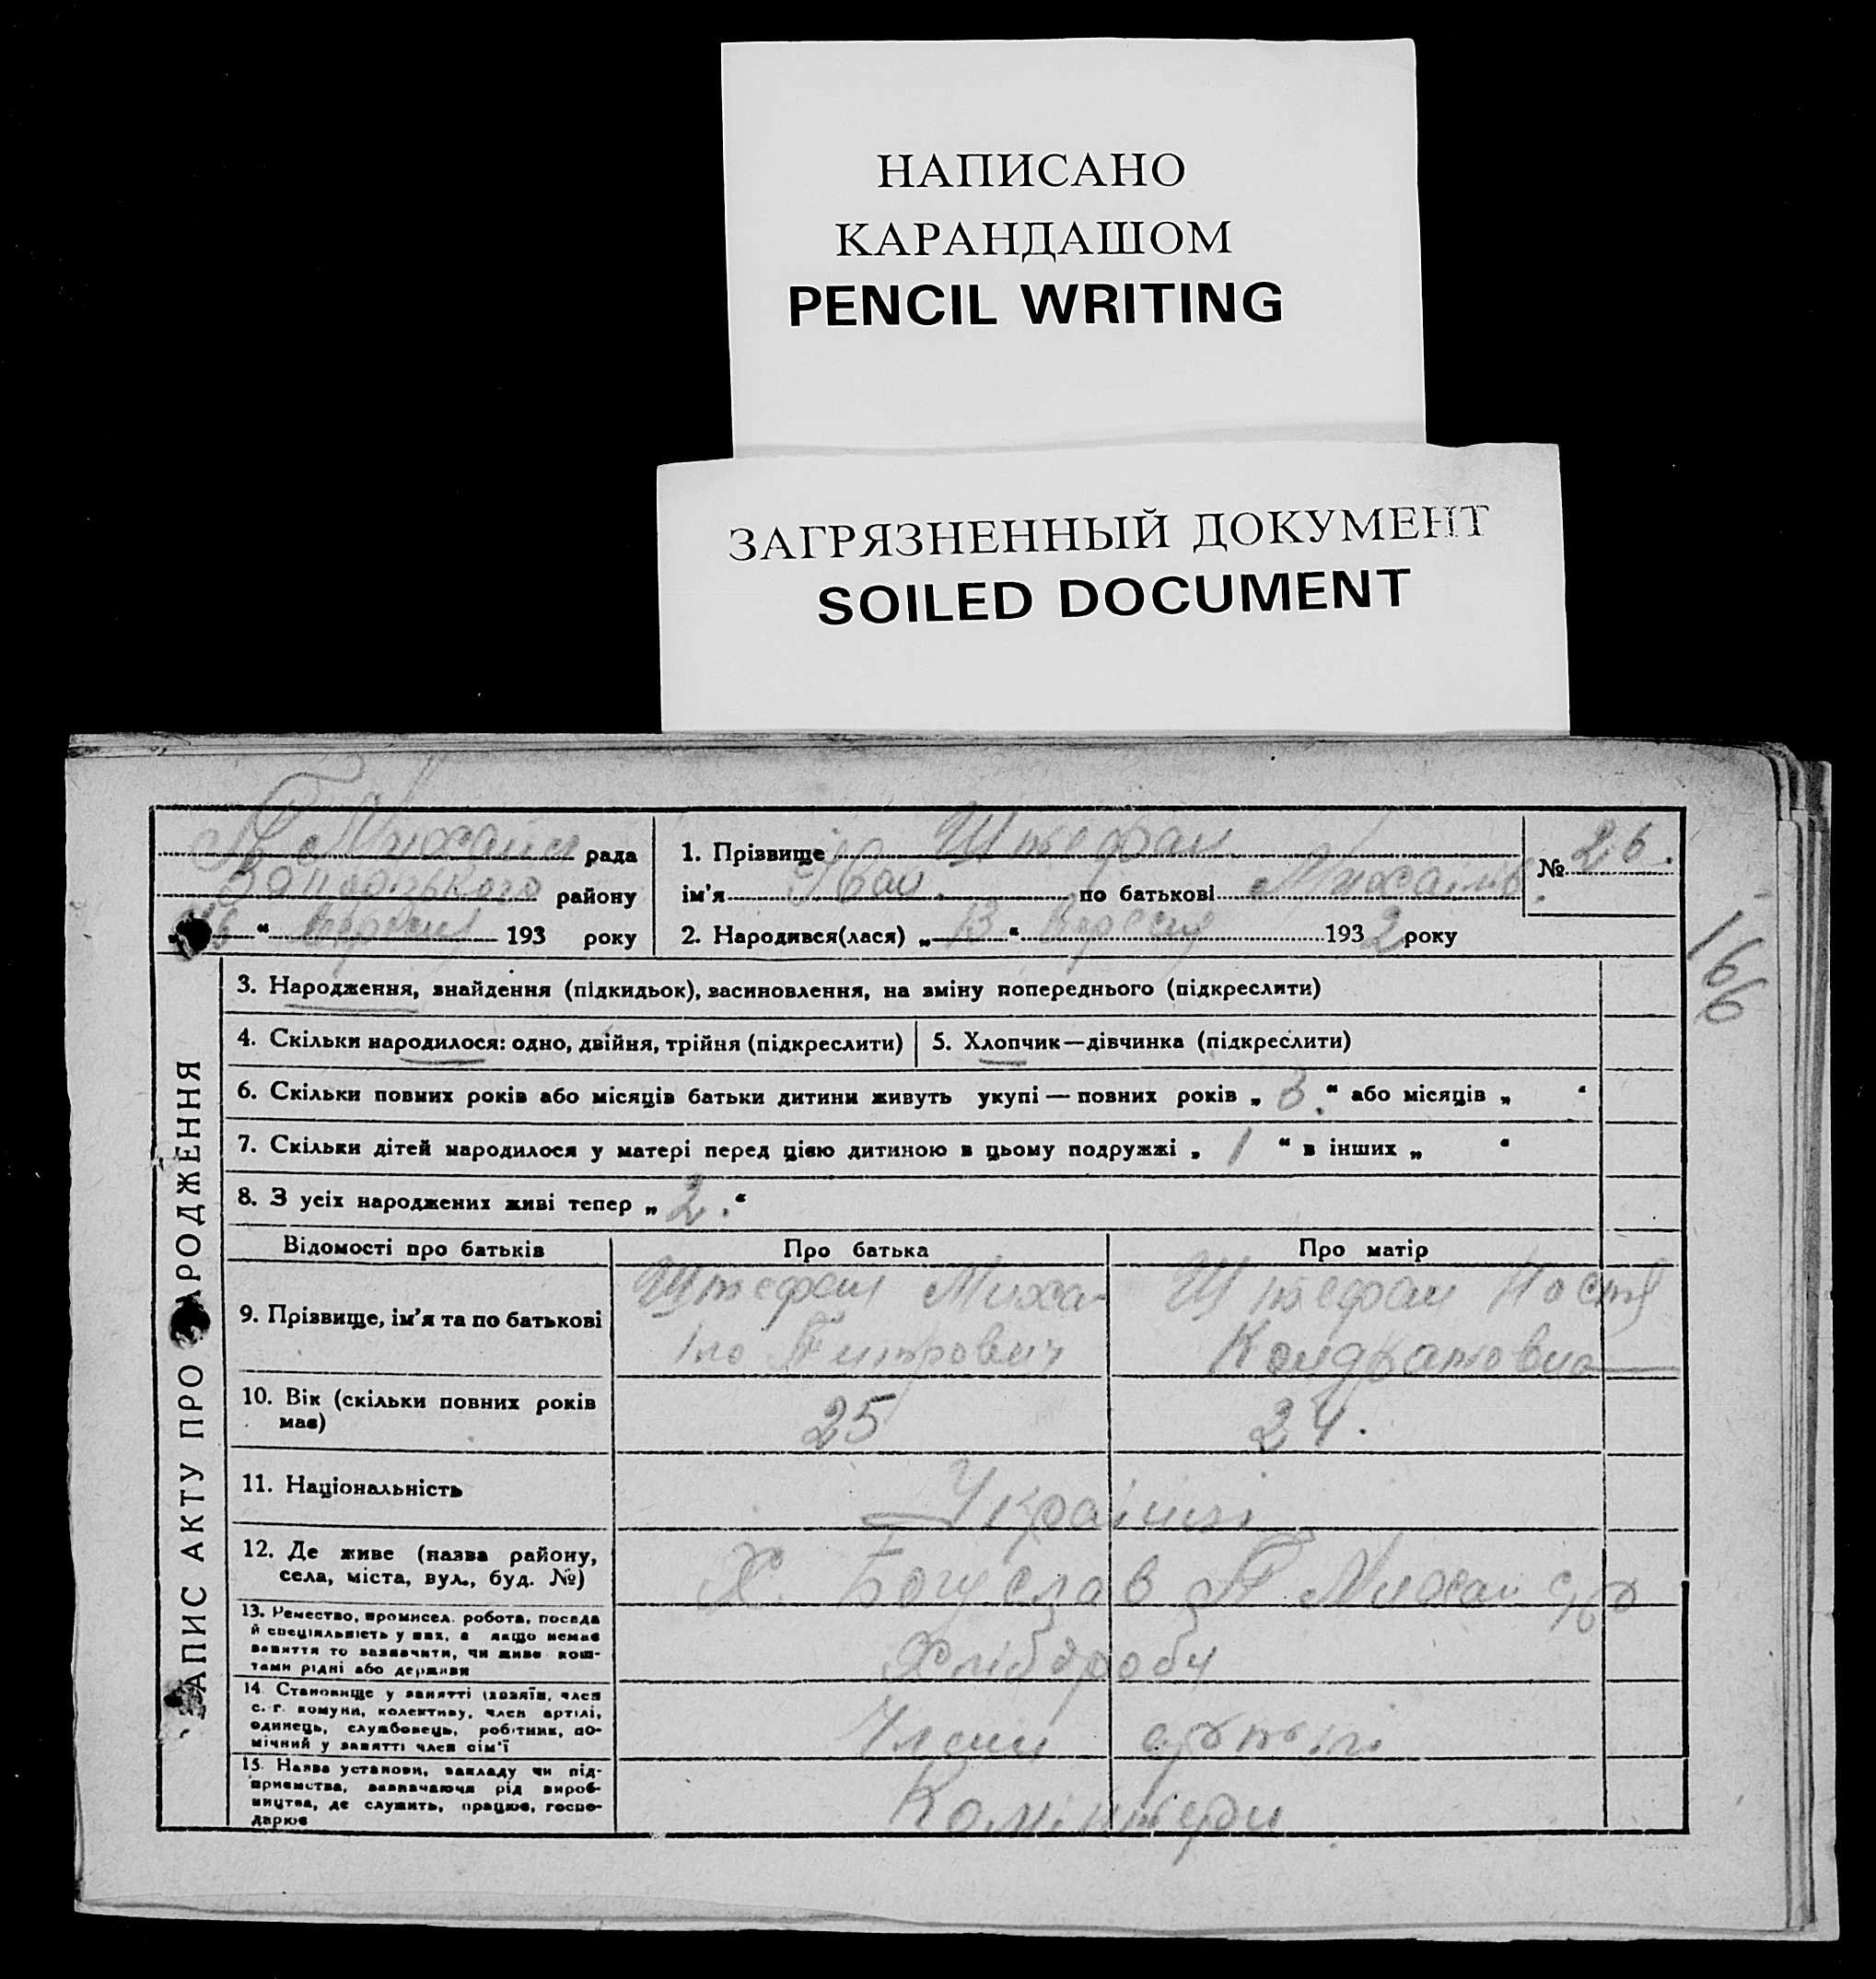 НАПИСАНО
КАРАНДАШОМ
PENCIL WRITING
ЗАГРЯЗНЕННЫЙ ДОКУМЕНТ
SOILED DOCUMENT
рада
району
193 року
1. Прізвище Штефан
ім'я Іван по батькові
2. Народився(лася) „ 13 “ вересня 1932 року
№ 26.
166
ЗАПИС АКТУ ПРО НАРОДЖЕННЯ
3. Народження, знайдення (підкидьок), засиновлення, на зміну попереднього (підкреслити)
4. Скільки народилося: одно, двійня, трійня (підкреслити)
5. Хлопчик—дівчинка (підкреслити)
6. Скільки повних років або місяців батьки дитини живуть укупі — повних років „ 3. “ або місяців „ “
7. Скільки дітей народилося у матері перед цією дитиною в цьому подружжі „ 1 “ в інших „ “
8. З усіх народжених живі тепер „ 2. “
Відомості про батьків
Про батька
Про матір
9. Прізвище, ім'я та по батькові
Штефан Миха-
йло
Штефан Настя
Кондратовна
10. Вік (скільки повних років
має)
25
24.
11. Національність
Українці
12. Де живе (назва району,
села, міста, вул., буд. №)
Х. Богуслав
13. Ремество, промисел, робота, посада
й спеціяльність у них, а якщо немає
заняття то зазначити, чи живе кош-
тами рідні або держави
Хлібороби
14. Становище у занятті (хозяїн, член
с.-г. комуни, колективу, член артілі,
одинець, службовець, робітник, по-
мічний у занятті член сім'ї
Члени артілі
15. Назва установи, закладу чи під-
приємства, зазначаючи рід вироб-
ництва, де служить, працює, госпо-
дарює
Комінтерн